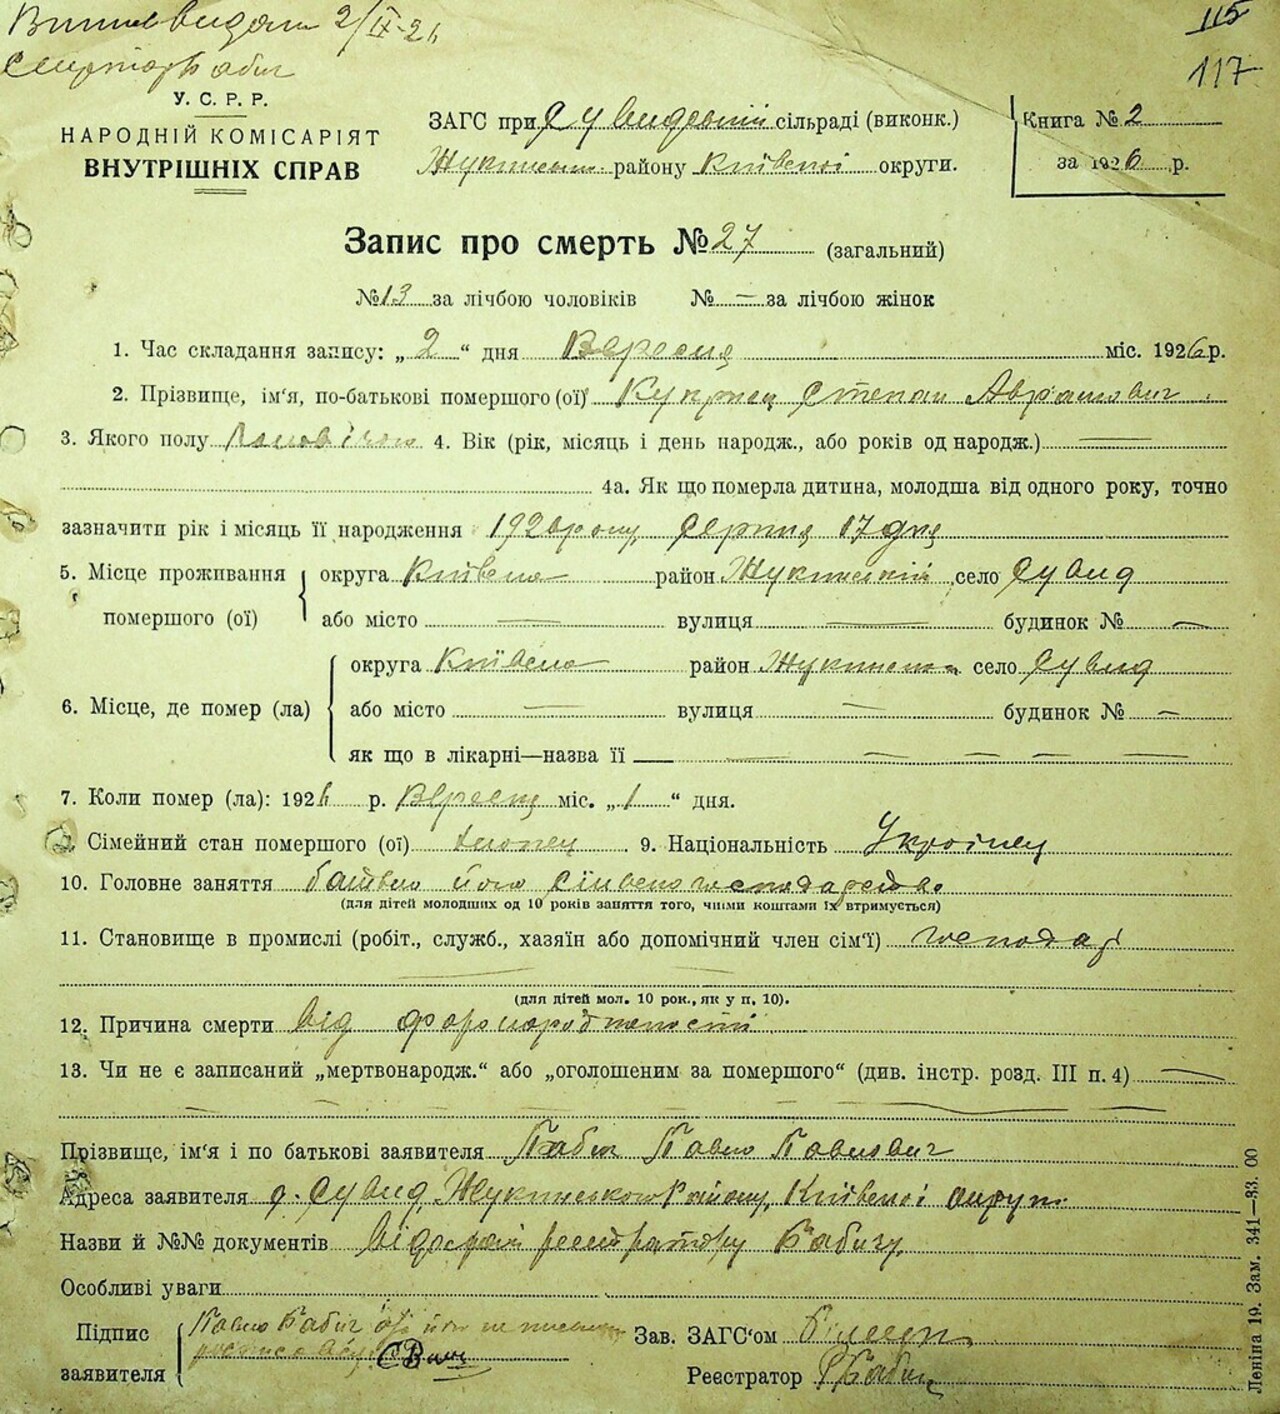 2/IX-26
115
117
У. С. Р. Р.
НАРОДНІЙ КОМІСАРІЯТ
ВНУТРІШНІХ СПРАВ
ЗАГС при Сувидській сільраді (виконк.)
району Київської округи.
Книга № 2
за 1926 р.
Запис про смерть № 27 (загальний)
№ 13 за лічбою чоловіків № — за лічбою жінок
1. Час складання запису: „ 2 “ дня Вересня міс. 1926 р.
2. Прізвище, ім'я, по-батькові помершого (ої) Степан Аврамович
3. Якого полу 4. Вік (рік, місяць і день народж., або років од народж.) —
4а. Як що померла дитина, молодша від одного року, точно
зазначити рік і місяць її народження року, Серпня 17 дня
5. Місце проживання помершого (ої) { округа Київська район Жукинський село Сувид
або місто — вулиця — будинок № —
6. Місце, де помер (ла) { округа Київська район село Сувид
або місто — вулиця — будинок № —
як що в лікарні—назва її — — — — —
7. Коли помер (ла): 1926 р. Вересня міс. „ 1 “ дня.
Сімейний стан помершого (ої) хлопец 9. Національність Українец
10. Головне заняття
(для дітей молодших од 10 років заняття того, чиїми коштами їх втримується)
11. Становище в промислі (робіт., служб., хазяїн або допомічний член сім'ї)
(для дітей мол. 10 рок., як у п. 10).
12. Причина смерти від
13. Чи не є записаний „мертвонародж.“ або „оголошеним за помершого“ (див. інстр. розд. III п. 4) —
Прізвище, ім'я і по батькові заявителя Бабич Павло Павлович
Адреса заявителя с. Сувид, Жукинського Району, Київської округи
Назви й №№ документів реєстратору Бабичу
Особливі уваги
Підпис заявителя { Павло Бабич
Зав. ЗАГС'ом
Реєстратор Бабич
Леніна 19. Зам. 341—33. 00